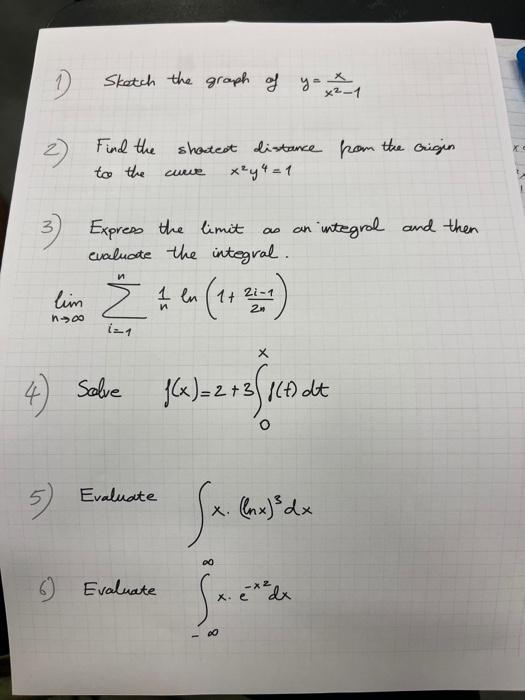 1) Sketch the graph of y = x/(x²-1)
2) Find the shortest distance from the origin
to the curve x²y⁴=1
3) Express the limit as an integral and then
evaluate the integral.
lim n→∞ Σ i=1 n 1/n ln (1+ (2i-1)/2n)
4) Solve f(x)=2+3∫₀ˣ f(t) dt
5) Evaluate ∫ x. (lnx)³ dx
6) Evaluate ∫ -∞ ∞ x. e^(-x²) dx